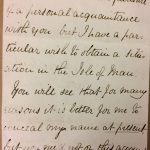 of a personal acquaintance
with you but I have a par-
ticular wish to obtain a situ-
ation in the Isle of Man
You will see that for many
reasons it is better for me to
conceal my name at present
but you